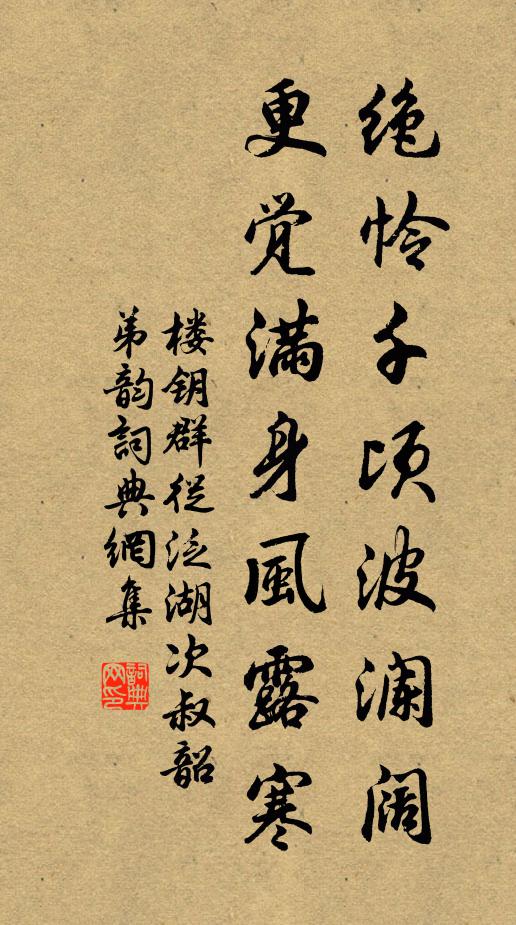 绝怜千顷波澜阔
更觉满身風露寒
楼钥群從泛湖次叔韶
弟韵詞典網集
詞典网印